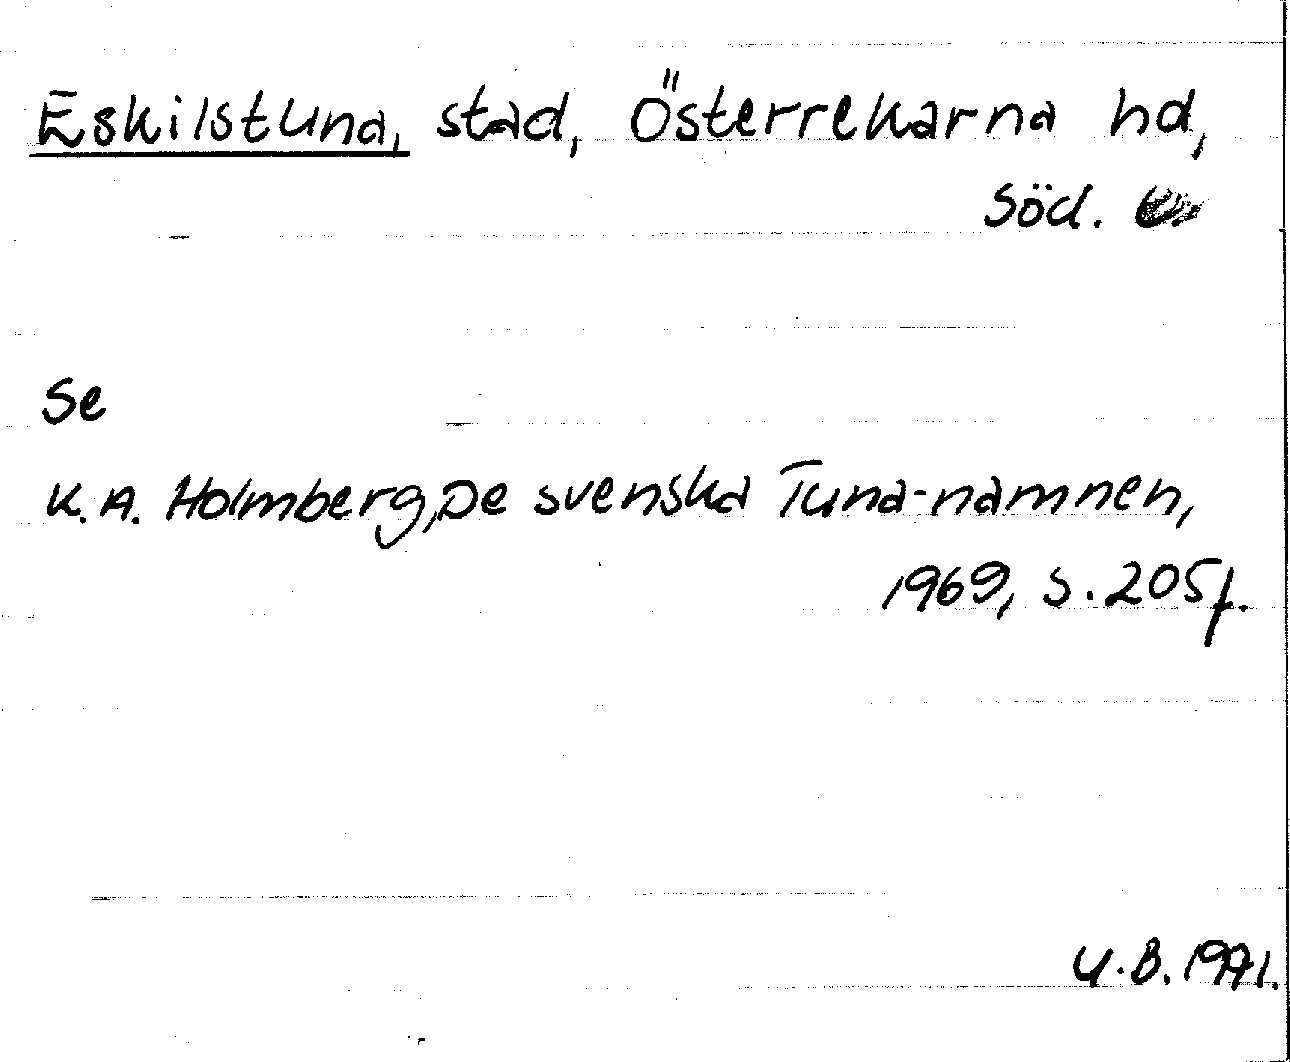 Eskilstuna, stad, Österrekarna hd,
Söd.
Se
K.A. Holmberg, De svenska Tuna-namnen,
1969, s. 205f.
U.B. 1971.